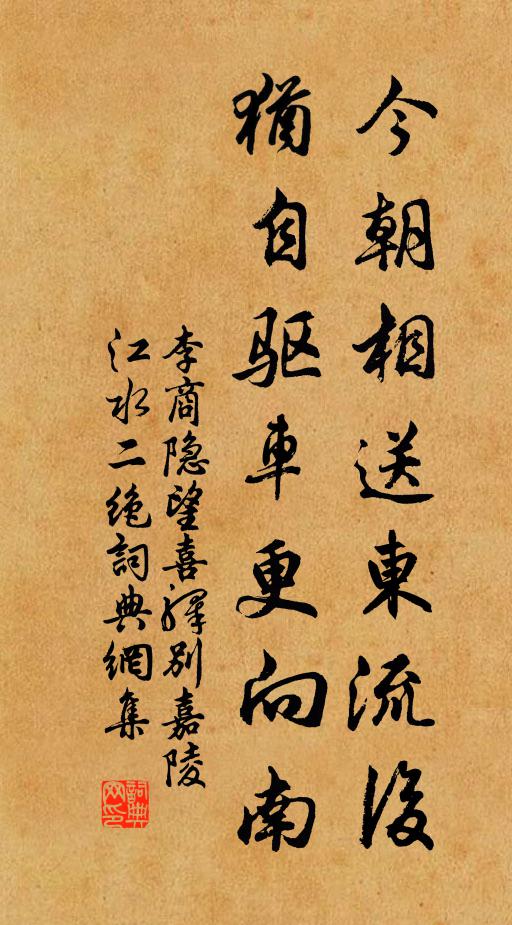 今朝相送東流後
猶自驱車更向南
李商隐望喜驛别嘉陵
江水二绝詞典網集
詞典
网印